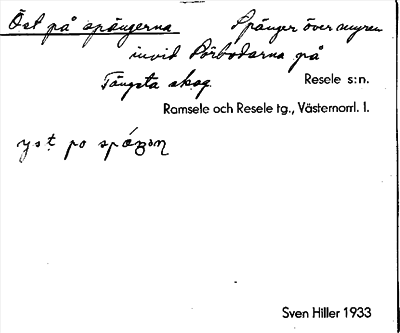 Öst på spängerna Spänger över myren
invid Pörbodarna på
Tängsta skog. Resele s:n.
Ramsele och Resele tg., Västernorrl. l.
Sven Hiller 1933